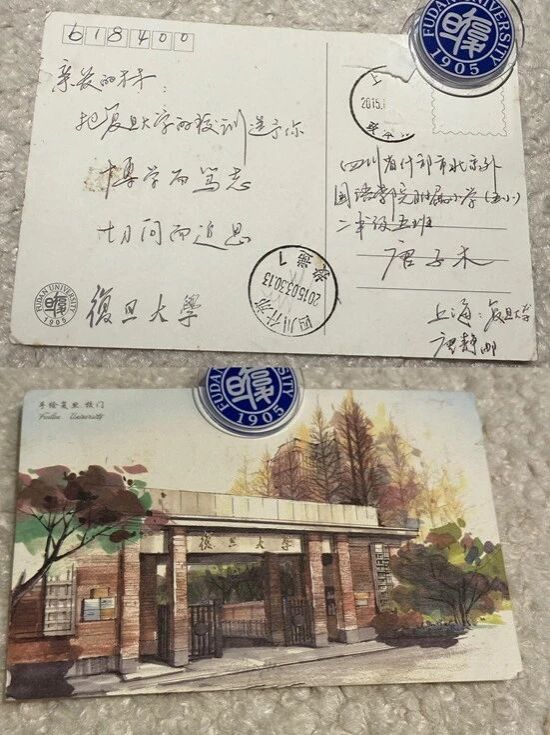 618400
亲爱的木木：
把复旦大学的校训送予你
博学而笃志
切问而近思
FUDAN UNIVERSITY
1905
復旦大學
上
2015.
四川省什邡市北京外
国语学院附属小学（五小）
二年级五班
唐子木
上海：复旦大学
唐静邮
四川什邡
2015.03.30.13
FUDAN UNIVERSITY
1905
手绘复旦.校门
Fudan University
復旦大學
FUDAN UNIVERSITY
1905